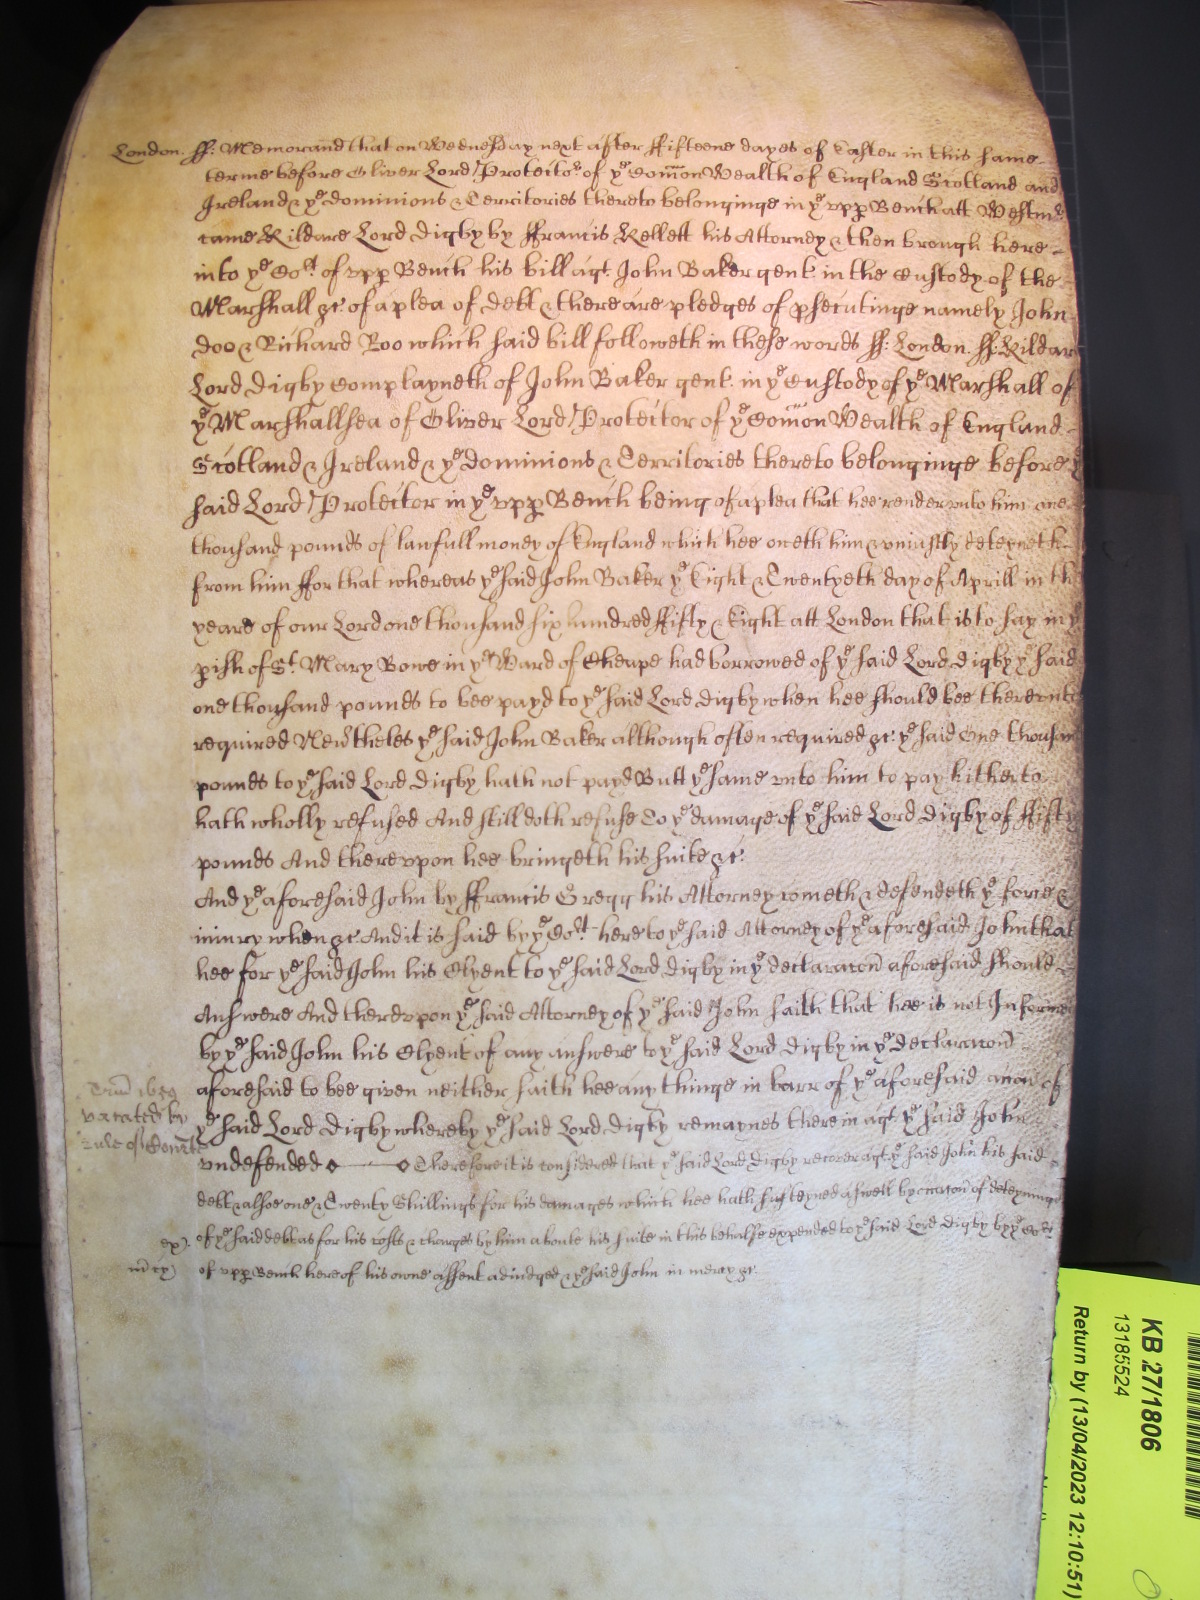 London. ff: Memorand that on Wednesday next after ffifteene dayes of Easter in this same
terme before Oliver Lord Protector of ye Comon Wealth of England Scotland and
Ireland & ye dominions & Territories thereto belonginge in ye vpp Bench att Westmr
came Kildare Lord Digby by ffrancis Kellett his Attorney & then brough here
into ye Cort of vpp Bench his bill agt. John Baker gent. in the Custody of the
Marshall &c. of a plea of debt & there are pledges of psecutinge namely John
Doo & Richard Roo which said bill followeth in these words ff: London. ff. Kildar
Lord Digby Complayneth of John Baker gent. in ye Custody of ye Marshall of
ye Marshallsea of Oliver Lord Protector of ye Comon Wealth of England
Scotland & Ireland & ye dominions & Territories thereto belonginge before
said Lord Protector in ye vpp Bench being of a plea that hee render vnto him one
thousand pounds of lawfull money of England which hee oweth him & vniustly deteyneth
from him ffor that whereas ye said John Baker ye Eight & Twentyeth day of Aprill in th
yeare of our Lord one thousand six hundred ffifty & Eight att London that is to say in y
pish of St. Mary Bowe in ye Ward of Cheape had borrowed of ye said Lord Digby ye said
one thousand pounds to bee payd to ye said Lord Digby when hee should bee therevnto
required Nevtheles ye said John Baker although often required &c. ye said One thousand
pounds to ye said Lord Digby hath not payd Butt ye same vnto him to pay hitherto
hath wholly refused And still doth refuse To ye damage of ye said Lord Digby of ffifty
pounds And therevpon hee bringeth his suite &c.
And ye aforesaid John by ffrancis Gregg his Attorney cometh & defendeth ye force &
iniury when &c And it is said by ye Cort here to ye said Attorney of ye aforesaid John that
hee for ye said John his Clyent to ye said Lord Digby in ye declaracon aforesaid should
Answere And therevpon ye said Attorney of ye said John saith that hee is not Informed
by ye said John his Clyent of any answere to ye said Lord Digby in ye declaracon
aforesaid to bee given neither saith hee any thinge in barr of ye aforesaid accon of
Trin 1659
vacated by
rule of Court
ye said Lord Digby whereby ye said Lord Digby remaynes therein agt. ye said John
vndefended Therefore it is considered that ye said Lord Digby recover agt. ye said John his said
debt & alsoe one & Twenty Shillings for his damages which hee hath susteyned aswell by occacon of deteyninge
of ye said debt as for his costs & charges by him aboute his suite in this behalfe expended to ye said Lord Digby by ye Cort
of vpp Bench here of his owne assent adiudged & ye said John in mercy &c.
KB 27/1806
13185524
Return by (13/04/2023 12:10:51)